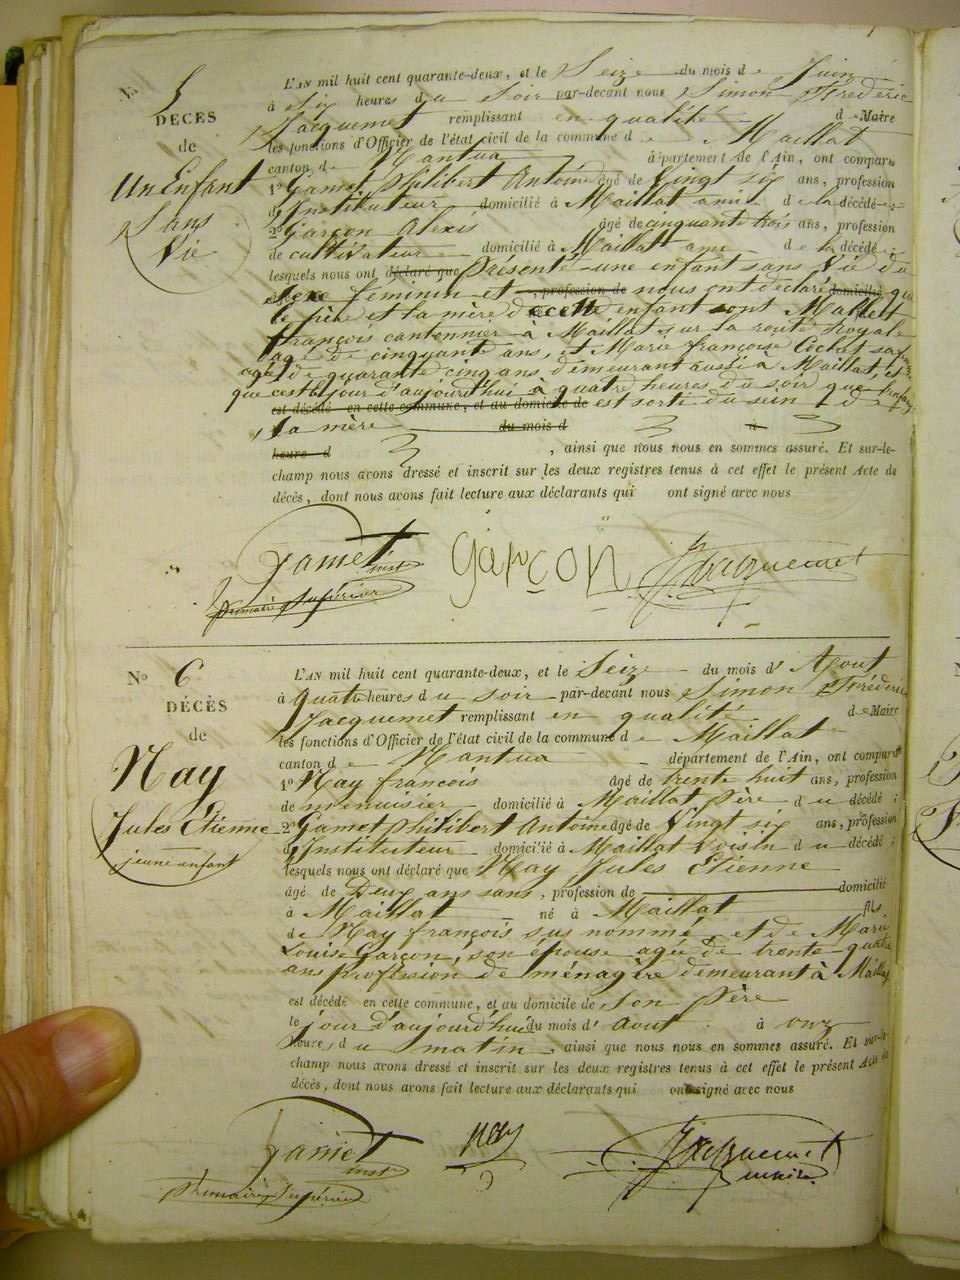 N° 5
DÉCÈS
de
Un Enfant
Sans
Vie
L'AN mil huit cent quarante-deux, et le Seize du mois de Juin
à Six heures du Soir par-devant nous Simon Frédéric
Jacquemet remplissant en qualité de Maire
les fonctions d'Officier de l'état civil de la commune d Maillat
canton d Nantua département de l'Ain, ont comparu
1° Gamet Philibert Antoine âgé de Vingt six ans, profession
d'Instituteur domicilié à Maillat ami de la décédée
2° Garçon Alexis âgé de cinquante trois ans, profession
de cultivateur domicilié à Maillat ami de la décédé ;
lesquels nous ont déclaré que Présenté une enfant sans Vie du
sexe feminin et , profession de nous ont déclaré domicilié que
le père et la mère de cette enfant sont
françois cantonnier à Maillat sur la route Royale
agé de cinquante ans, et Marie françoise sa femme
agée de quarante cinq ans, demeurant aussi à Maillat, et
que c'est le jour d'aujourd'hui à quatre heures du soir que
est décédé en cette commune, et au domicile de est sorti du sein de
la mère du mois d à
heure d , ainsi que nous nous en sommes assuré. Et sur-le-
champ nous avons dressé et inscrit sur les deux registres tenus à cet effet le présent Acte de
décès, dont nous avons fait lecture aux déclarants qui ont signé avec nous
Gamet inst garçon Jacquemet
Primaire Supérieur
N° 6
DÉCÈS
de
Nay
Jules Etienne
jeune enfant
L'AN mil huit cent quarante-deux, et le Seize du mois d' Aout
à quatre heures du soir par-devant nous Simon Frédéric
Jacquemet remplissant en qualité de Maire
les fonctions d'Officier de l'état civil de la commune de Maillat
canton de Nantua département de l'Ain, ont comparu
1° Nay françois âgé de trente huit ans, profession
de menuisier domicilié à Maillat père du décédé ;
2° Gamet Philibert Antoine âgé de Vingt six ans, profession
d'Instituteur domicilié à Maillat Voisin du décédé ;
lesquels nous ont déclaré que Nay Jules Etienne
âgé de Deux ans sans , profession de domicilié
à Maillat né à Maillat fils
de Nay françois sus nommé, et de Marie
Louise Garçon, son épouse agée de trente quatre
ans profession de ménagère demeurant à Maillat
est décédé en cette commune, et au domicile de son père
le jour d'aujourd'hui du mois d' aout à onze
heure, du matin , ainsi que nous nous en sommes assuré. Et sur-le-
champ nous avons dressé et inscrit sur les deux registres tenus à cet effet le présent Acte de
décès, dont nous avons fait lecture aux déclarants qui ont signé avec nous
Gamet inst Nay Jacquemet
Primaire Supérieur maire